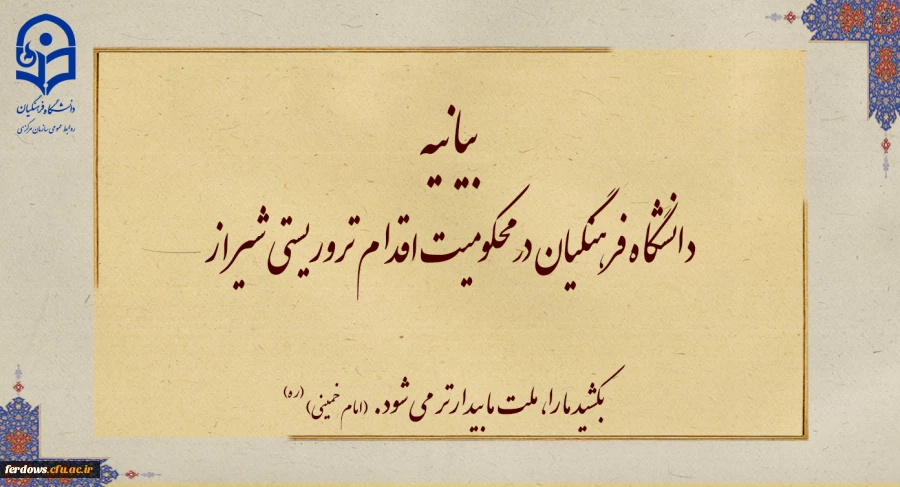 دانشگاه فرهنگیان
روابط عمومی سازمان مرکزی
بیانیه
دانشگاه فرهنگیان در محکومیت اقدام تروریستی شیراز
بکشید ما را، ملت ما بیدارتر می شود. (امام خمینی) (ره)
ferdows.cfu.ac.ir